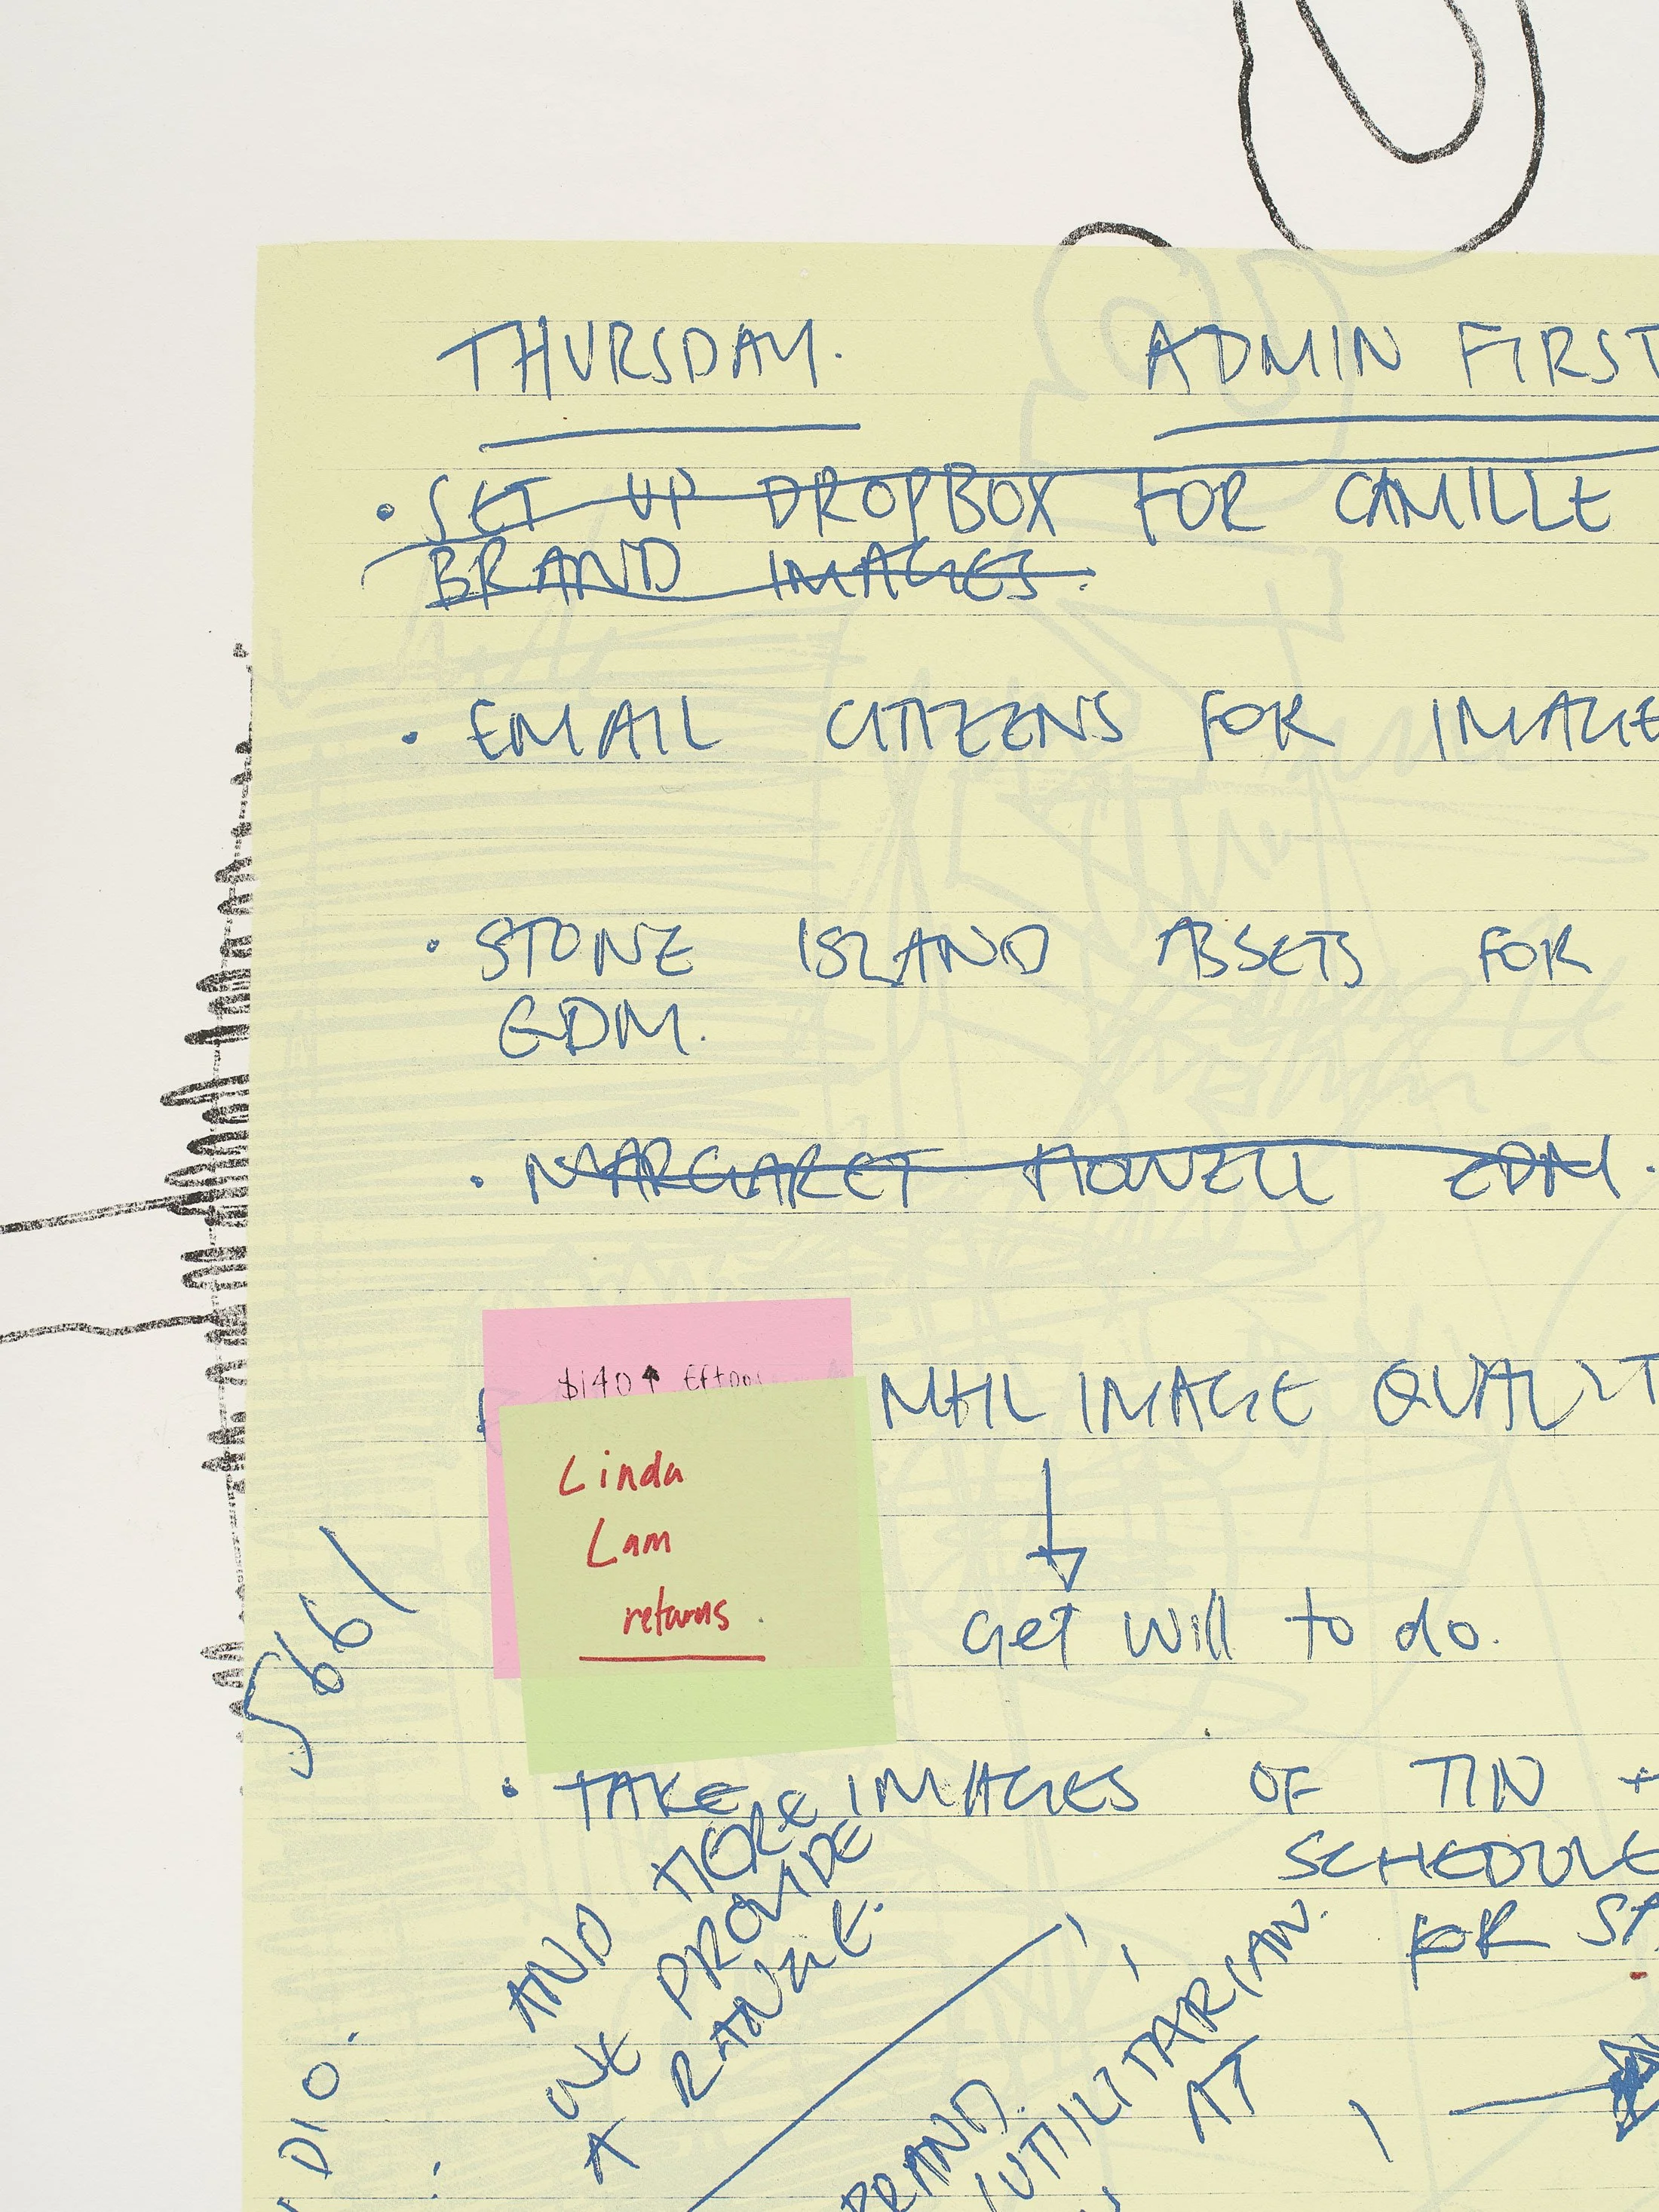 THURSDAY. ADMIN FIRST
• SET UP DROPBOX FOR CAMILLE
BRAND IMAGES.
• EMAIL CITIZENS FOR IMAGE
• STONE ISLAND ASSETS FOR
EDM.
• MARGARET HOWELL EDM.
$140↑ Eftpos
MHL IMAGE QUALIT
Linda
Lam
returns.
Get Will to do.
5661
• TAKE IMAGES OF TIN +
SCHEDULE
FOR
AND HERE
WE PROVIDE
A RANGE.
BRAND.
UTILITARIAN.
AT
DIO.